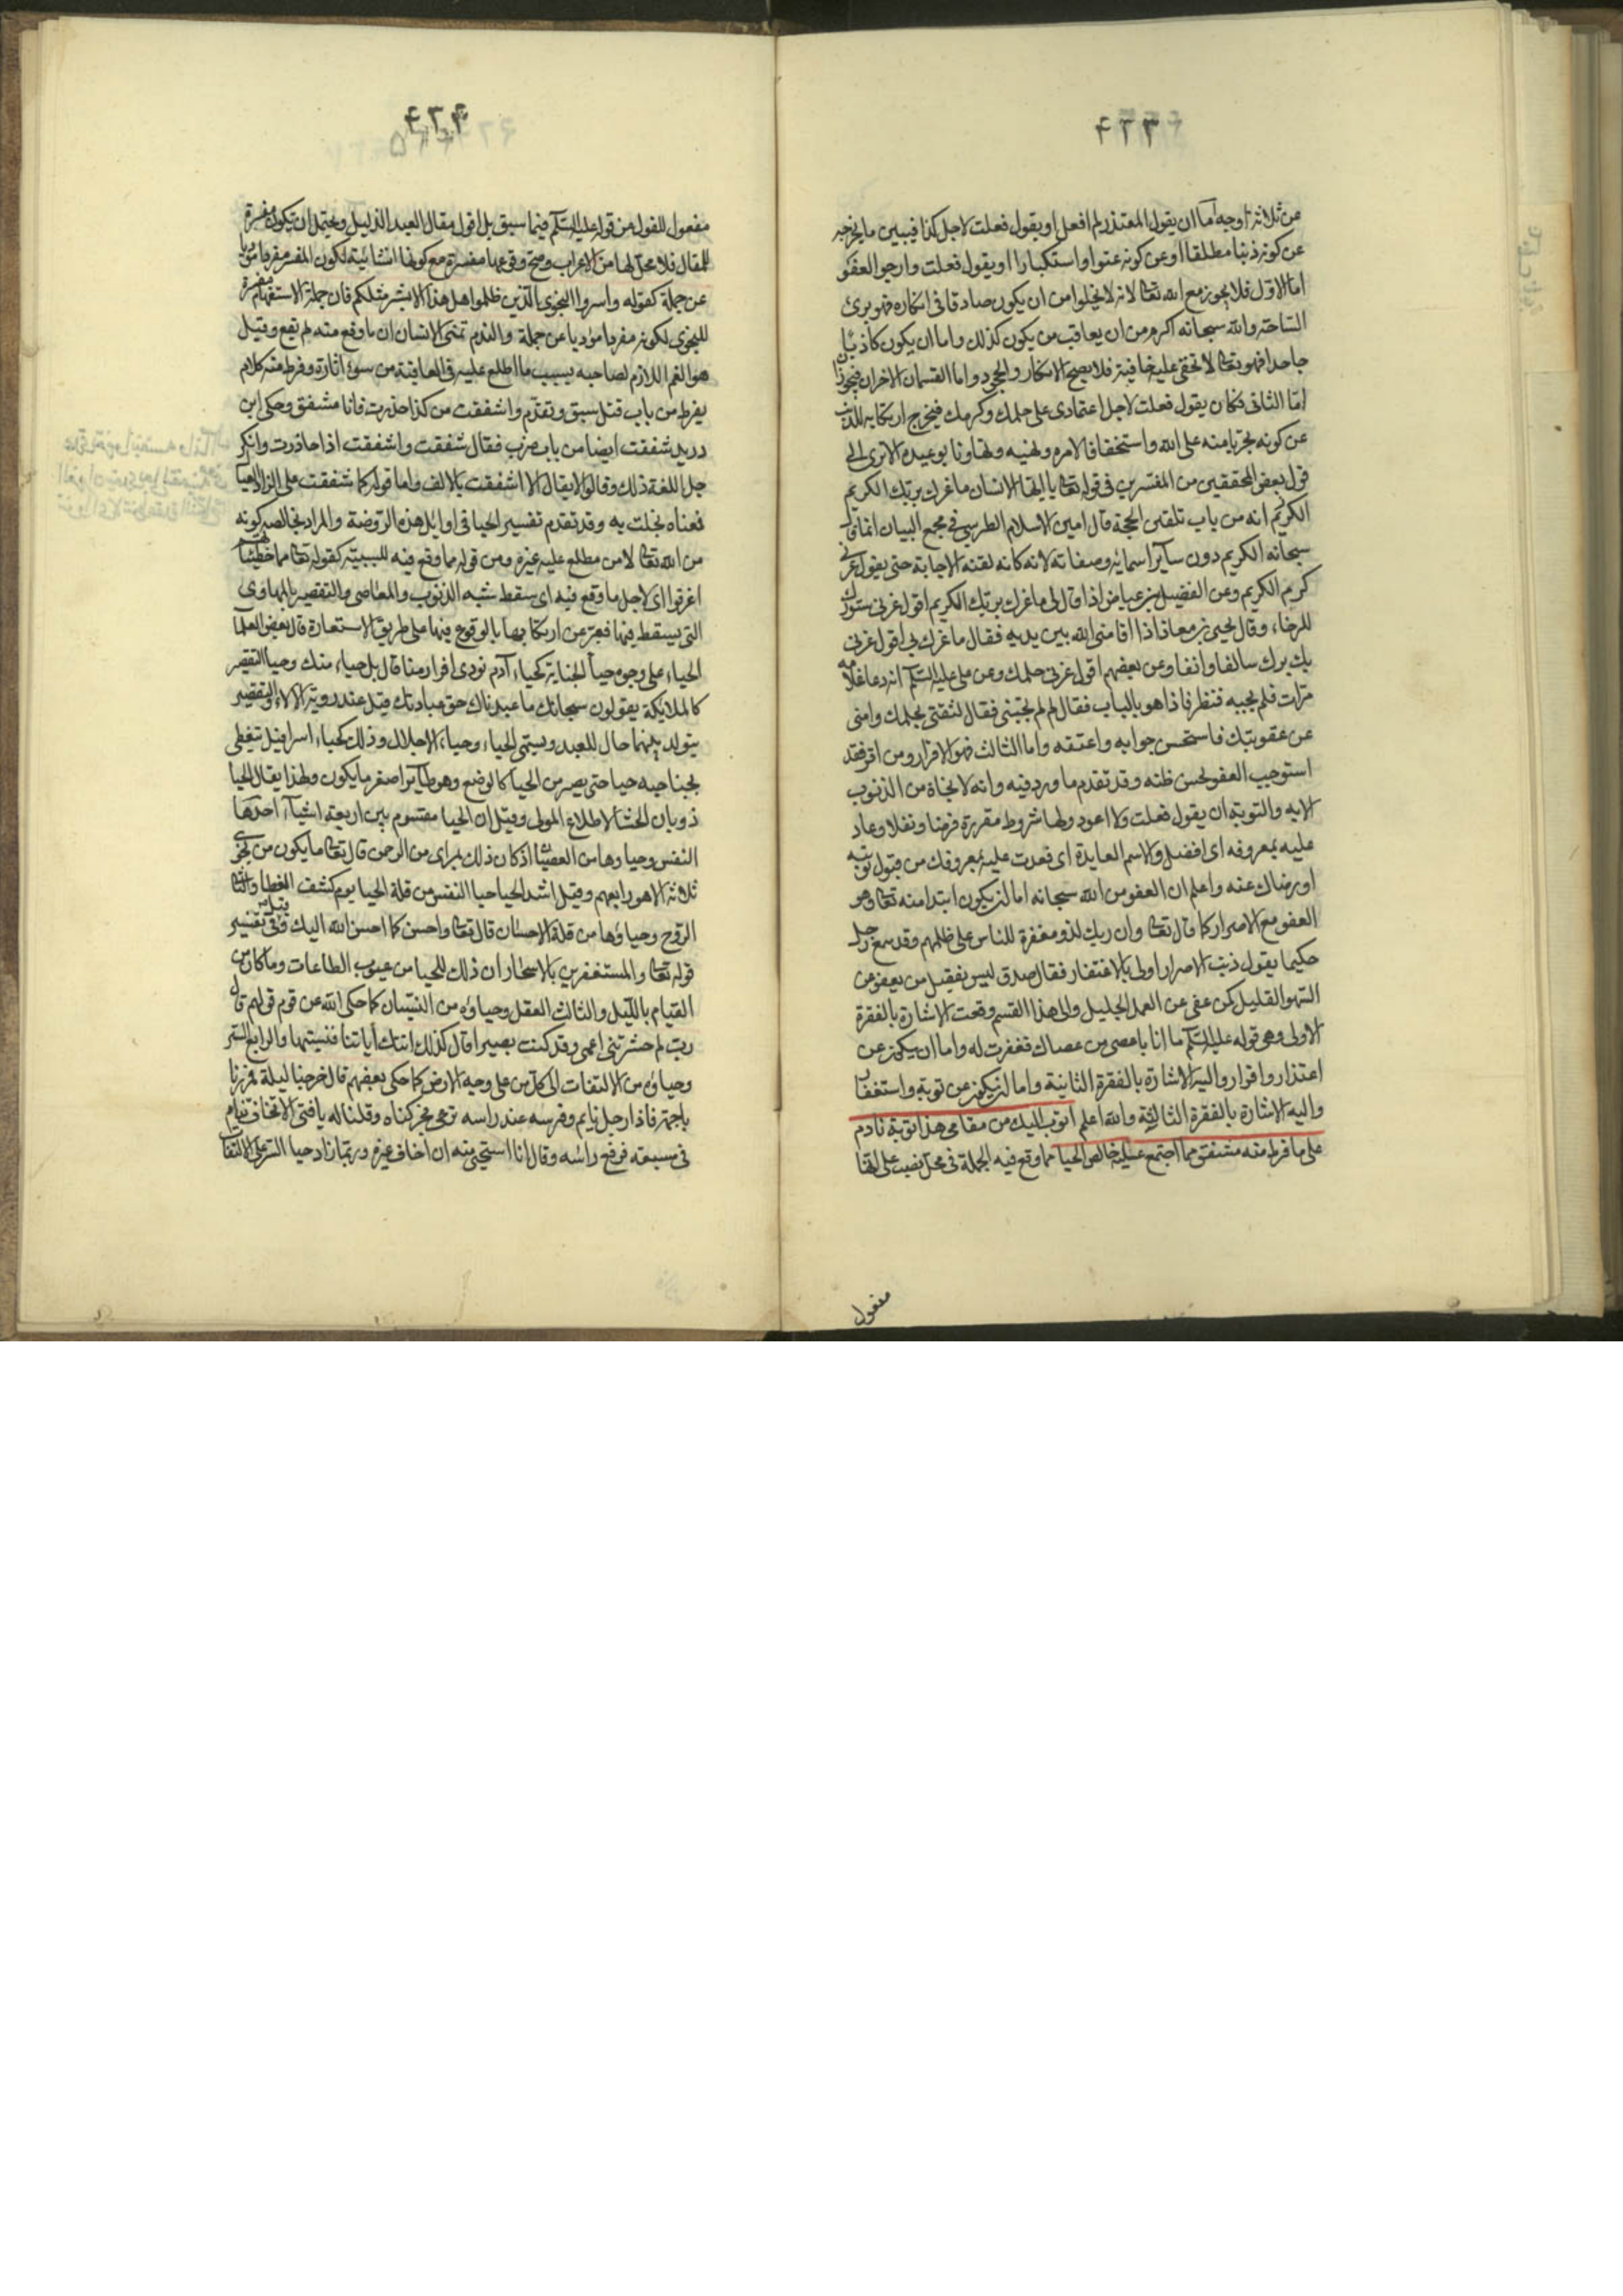 ٤٣٣
من ثلاثة اوجه اما ان يقول المعتذر لم افعل او يقول فعلت لاجل كذا فيبين ما يخرجه
عن كونه ذنبا مطلقا او عن كونه عتوا واستكبارا او يقول فعلت وارجو العفو
اما الاول فلا يجوز مع الله تعالى لانه لا يخلوا من ان يكون صادقا فى انكاره فهو برئ
الساحة والله سبحانه اكرم من ان يعاقب من يكون كذلك واما ان يكون كاذبا
جاحدا فهو تعالى لا تخفى عليه خافية فلا يصح الانكار والجحود واما القسمان الاخران فيجوزان
امّا الثانى فكان يقول فعلت لاجل اعتمادى على حلمك وكرمك فيخرج ارتكابه للذنب
عن كونه تجريا منه على الله واستخفافا لامره ونهيه وتهاونا بوعيده الا ترى الى
قول بعض المحققين من المفسرين فى قوله تعالى يا ايها الانسان ما غرك بربك الكريم
الكريم انه من باب تلقين الحجة قال امين الاسلام الطبرسى فى مجمع البيان انما قال
سبحانه الكريم دون سائر اسمائه وصفاته لانه كانه لقنه الاجابة حتى يقول غرنى
كرم الكريم وعن الفضيل بن عياض اذا قال لى ما غرك بربك الكريم اقول غرنى ستورك
المرخاء وقال يحيى بن معاذ اذا اقامنى الله بين يديه فقال ما غرك بى اقول غرنى
بك برك سالفا وانفا وعن بعضهم اقول غرنى حلمك وعن على عليه السّلم انه دعا غلامه
مرات فلم يجبه فنظر فاذا هو بالباب فقال له لم لم تجبنى فقال لثقتى بحلمك وامنى
من عقوبتك فاستحسن جوابه واعتقه واما الثالث فهو الاقرار ومن اقر فقد
استوجب العفو لحسن ظنه وقد تقدم ما ورد فيه وانه لا نجاة من الذنوب
الا به والتوبة ان يقول فعلت ولا اعود ولها شروط مقررة فرضا ونفلا وعاد
عليه بمعروفه اى افضل والاسم العايدة اى فعدت عليه بمعروفك من قبول توبته
او رضاك عنه واعلم ان العفو من الله سبحانه اما ان يكون ابتدا منه تعالى وهو
العفو مع الاصرار كما قال تعالى وان ربك لذو مغفرة للناس على ظلمهم وقد سمع رجل
حكيما يقول ذنب الاصرار اولى بالاغتفار فقال صدق ليس فضل من يعفو عن
السهو القليل كمن عفى عن العمد الجليل والى هذا القسم وقعت الاشارة بالفقرة
الاولى وهى قوله عليه السّلم ما انا باعصى من عصاك فغفرت له واما ان يكون عن
اعتذار واقرار واليه الاشارة بالفقرة الثانية واما ان يكون عن توبة واستغفار
واليه الاشارة بالفقرة الثالثة والله اعلم اتوب اليك من مقامى هذا توبة نادم
على ما فرط منه مشفق مما اجتمع عليه خالص الحياء مما وقع فيه الجملة فى محل نصب على انها
مفعول
٤٣٤
مفعول للقول من قوله عليه السّلم فيما سبق بل اقول مقال العبد الذليل ويحتمل ان تكون مفسرة
للمقال فلا محل لها من الاعراب وصح وقوعها مفسرة مع كونها انشائية لكون المفسر مفردا مؤديا
عن جملة كقوله واسروا النجوى الذين ظلموا هل هذا الا بشر مثلكم فان جملة الاستفهام مفسرة
للنجوى لكونه مفردا مؤديا عن جملة والندم تمنى الانسان ان ما وقع منه لم يقع وقيل
هو الغم اللازم لصاحبه بسبب ما اطلع عليه فى العاقبة من سوء اثاره وفرط منه كلام
يفرط من باب قتل سبق وتقدّم واشفقت من كذا حذرت فانا مشفق وحكى ابن
دريد شفقت ايضا من باب ضرب فقال شفقت واشفقت اذا حاذرت وانكر
جل اهل اللغة ذلك وقالوا لا يقال الا اشفقت بالالف واما قوله كما شفقت على الزاد العيال
فمعناه بخلت به وقد تقدم تفسير الحيا فى اوايل هذه الروضة والمراد بخالصه كونه
من الله تعالى لا من مطلع عليه غيره ومن قوله مما وقع فيه للسببيّة كقوله تعالى مما خطيئاتهم
اغرقوا اى لاجل ما وقع فيه اى سقط شبه الذنوب والمعاصى والتقصير بالمهاوى
التى يسقط فيها فعبّر عن ارتكابها بالوقوع فيها على طريق الاستعارة قال بعض العلماء
الحياء على وجوه حياء الجناية كحياء آدم نودى افرارا منا قال بل حياء منك وحيا التقصير
كالملايكة يقولون سبحانك ما عبدناك حق عبادتك قيل عند روية الآلاء والتقصير
يتولد بينهما حال للعبد ويسمى الحياء وحياء الاجلال وذلك كحياء اسرافيل تغطى
بجناحيه حيا حتى يصير من الحيا كالوضع وهو طاير اصغر ما يكون ولهذا يقال الحيا
ذوبان الحشا لاطلاع المولى وقيل ان الحيا مقسوم بين اربعة اشياء احدها
النفس وحياوها من العصيان اذ كان ذلك بمراى من الرحمن قال تعالى ما يكون من نجوى
ثلاثة الا هو رابعهم وقيل اشد الحيا حيا النفس من قلة الحيا يوم كشف الغطا والثانى
الروح وحياؤها من قلة الاحسان قال تعالى واحسن كما احسن الله اليك وقيل فى تفسير
قوله تعالى والمستغفرين بالاسحار ان ذلك للحيا من عيوب الطاعات وما كان من
القيام بالليل والثالث العقل وحياؤه من النسيان كما حكى الله عن قوم قولهم قال
رب لم حشرتنى اعمى وقد كنت بصيرا قال كذلك اتتك آياتنا فنسيتها والرابع السّر
وحياؤه من الالتفات الى كل من على وجه الارض كما حكى بعضهم قال خرجنا ليلة فمررنا
باجمة فاذا رجل نايم وفرسه عند راسه ترعى فحركناه وقلنا له يا فتى الا تخاف تنام
فى مسبعة فرفع راسه وقال انا استحيى منه ان اخاف غيره وربما زاد حيا السر على الالتفات